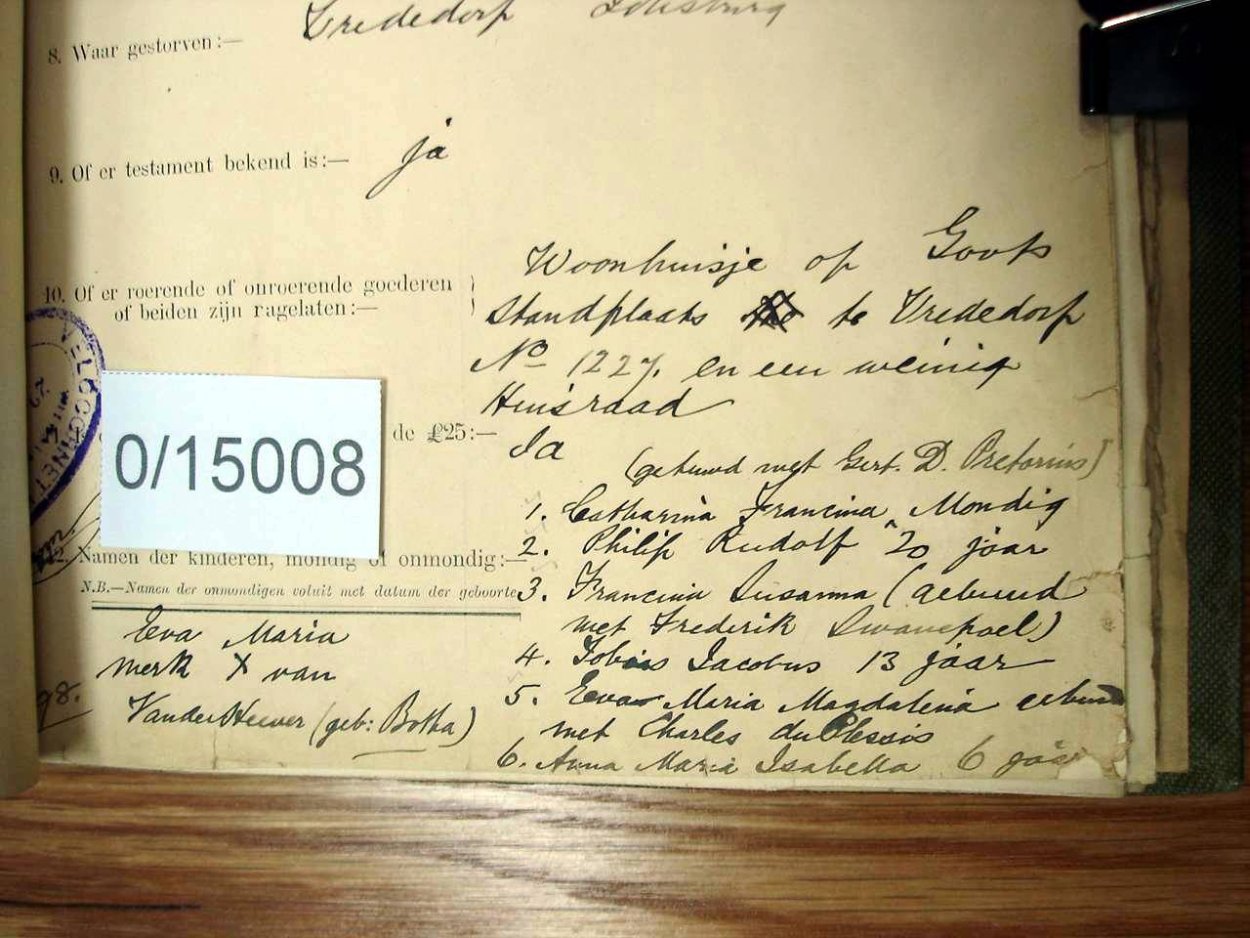 8. Waar gestorven:— Vrededorp Johsburg
9. Of er testament bekend is:— ja
10. Of er roerende of onroerende goederen
of beiden zijn nagelaten:—
Woonhuisje op Govts
standplaats te Vrededorp
No 1227. en een weinig
Huisraad
de £25:— Ja
0/15008
(getuwd met Gert. D. Pretorius)
12. Namen der kinderen, mondig of onmondig:—
N.B.—Namen der onmondigen voluit met datum der geboorte
1. Catharina Francina Mondig
2. Philip Rudolf 20 jaar
3. Francina Susanna (getuud
met Frederik Swanepoel)
4. Tobias Jacobus 13 jaar
5. Eva Maria Magdalena
met Charles du Plessis
6. Anna Maria Isabella 6 jaar
Eva Maria
merk X van
Van der Heever (geb: Botha)
98.